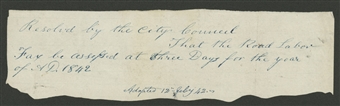 Resolved by the City Council
That the Road Labor
Tax be assessed at three Days for the year
of A.D. 1842
Adopted 12 Feby 42